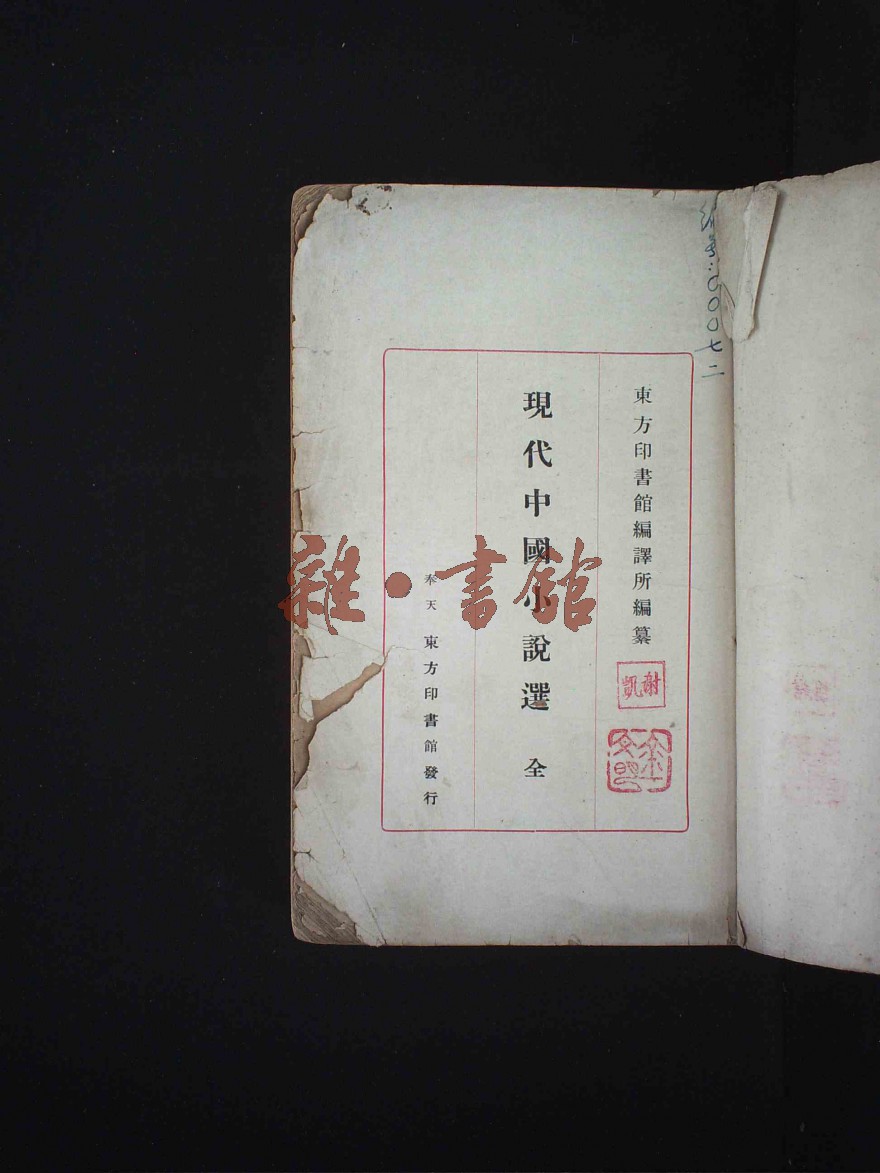 東方印書館編譯所編纂
現代中國小說選 全
奉天 東方印書館發行
雜·書館
謝凱
〇〇〇七二